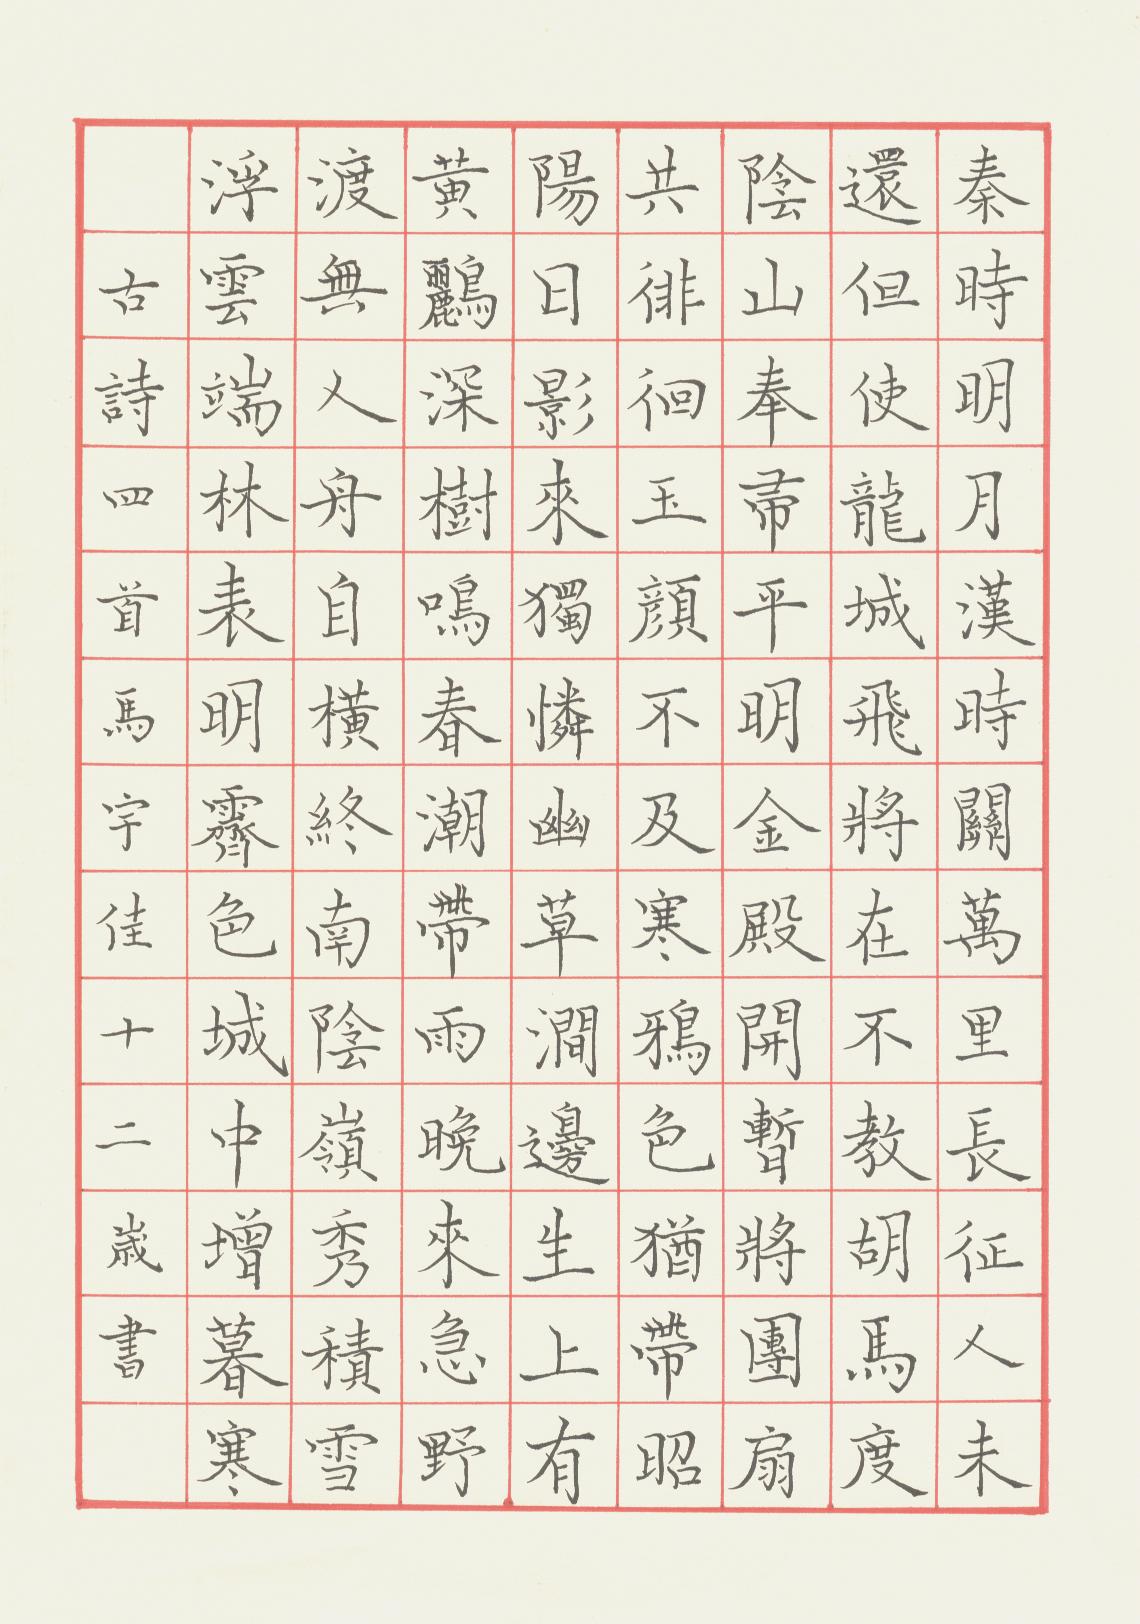 秦時明月漢時關萬里長征人未
還但使龍城飛將在不教胡馬度
陰山奉帚平明金殿開暫將團扇
共徘徊玉顔不及寒鴉色猶帶昭
陽日影來獨憐幽草澗邊生上有
黃鸝深樹鳴春潮帶雨晚來急野
渡無人舟自橫終南陰嶺秀積雪
浮雲端林表明霽色城中增暮寒
古詩四首馬宇佳十二歲書